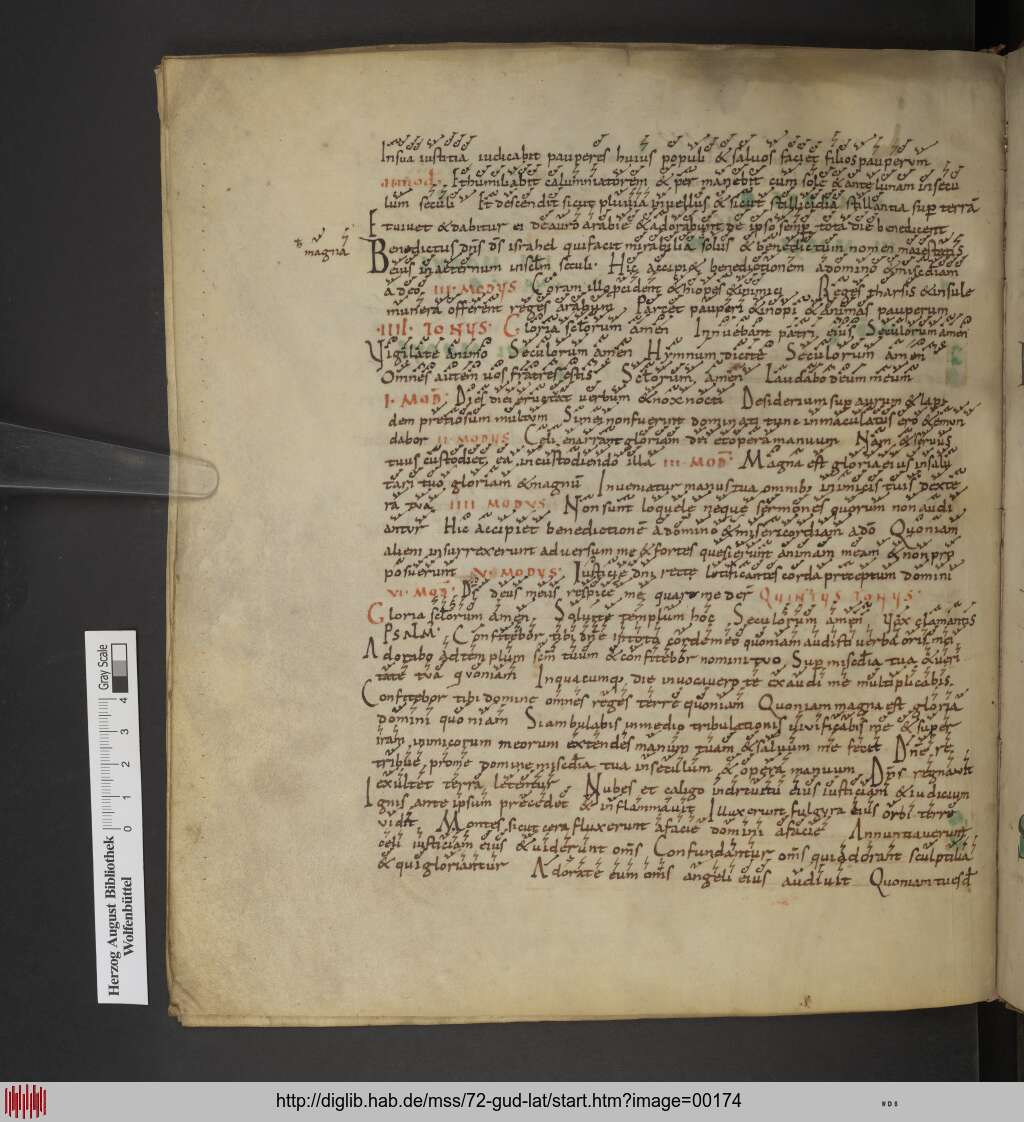 In sua iustitia iudicabit pauperes huius populi & saluos faciet filios pauperum
II mod. Et humiliabit calumniatorem & per manebit cum sole & ante lunam in secu
lum seculi Et descendit sicut pluuia in uellus & sicut stillicidia stillantia sup terrã
Et uiuet & dabitur ei de auro arabie & adorabunt de ipso semp tota die benedicent
magna
Benedictus dñs ds israhel qui facit mirabilia solus & benedictum nomen maiestatis
eius in aeternum in sclm seculi. Hic accipi& benedictionem a domino & misediam
a deo. III. MODVS Coram illo pcident & hiopes & inimici Reges tharsis & insule
munera offerent reges arabum Parcet pauperi & inopi & animas pauperum
IIII. TONVS Gloria sclorum amen Inuebant patri eius Seculorum amen
Vigilate animo Seculorum amen Hymnum dicite Seculorum amen
Omnes autem uos fratres estis Sclorum, amen Laudabo deum meum
I. MOD. Dies diei eructat uerbum & nox nocti Desiderium sup aurum & lapi
dem pretiosum multum Si mei non fuerunt dominati tunc inmaculatus ero & emun
dabor II. MODVS Celi enarrant gloriam dñi et opera manuum Nam & seruus
tuus custodiet ea in custodiendo illa III. MOD. Magna est gloria eius in salu
tari tuo gloriam & magnũ Inueniatur manus tua omnib; inimicis tuis dexte
ra tua IIII MODVS Non sunt loquele neque sermones quorum non audi
antur Hic accipiet benedictionẽ a domino & misericordiam a deo Quoniam
alieni insurrexerunt aduersum me & fortes quesierunt animam meam & non pro
posuerunt V. MODVS Iusticie dñi recte letificantes corda preceptum domini
VI. MOD. Ds deus meus respice me quare me der QVINTVS TONVS
Gloria sclorum amen Soluite templum hoc Seculorum amen Vox clamantis
PSALM. Confitebor tibi dñe in toto corde meo quoniam audisti uerba oris mei
Adorabo ad templum scm tuum & confitebor nomini tuo Sup misedia tua & ueri
tate tua quoniam In quacumq; die inuocauero te exaudi me multiplicabis
Confitebor tibi domine omnes reges terre quoniam Quoniam magna est gloria
domini quoniam Si ambulabis in medio tribulationis uiuificabis me & super
iram inimicorum meorum extendes manum tuam & saluum me fecet Dñe re
tribue pro me domine misedia tua in seculum & opera manuum Dñs regnauit
exultet terra letentur Nubes et caligo in circuitu eius iusticiam & iudicium
Ignis ante ipsum precedet & inflammauit Illuxerunt fulgura eius orbi terre
uidit Montes sicut cera fluxerunt a facie domini a facie Annuntiauerunt
celi iusticiam eius & uiderunt oms Confundantur oms qui adorant sculptilia
& qui gloriantur Adorate eum oms angeli eius audiuit Quoniam tu es ds
Gray Scale
0 1 2 3 4
Herzog August Bibliothek
Wolfenbüttel
http://diglib.hab.de/mss/72-gud-lat/start.htm?image=00174
WDB